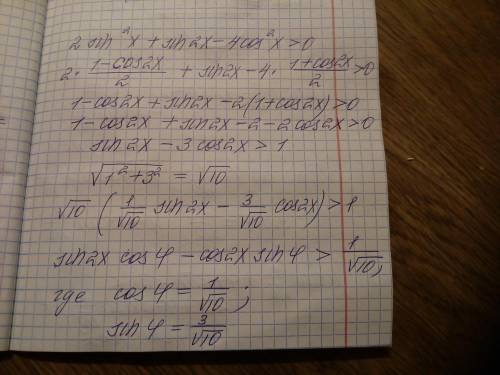 2 sin²x + sin2x - 4cos²x > 0
2 · (1 - cos2x)/2 + sin2x - 4 · (1 + cos2x)/2 > 0
1 - cos2x + sin2x - 2(1 + cos2x) > 0
1 - cos2x + sin2x - 2 - 2cos2x > 0
sin2x - 3 cos2x > 1
√(1² + 3²) = √10
√10 (1/√10 sin2x - 3/√10 cos2x) > 1
sin2x cos φ - cos2x sin φ > 1/√10,
где cos φ = 1/√10 ;
sin φ = 3/√10